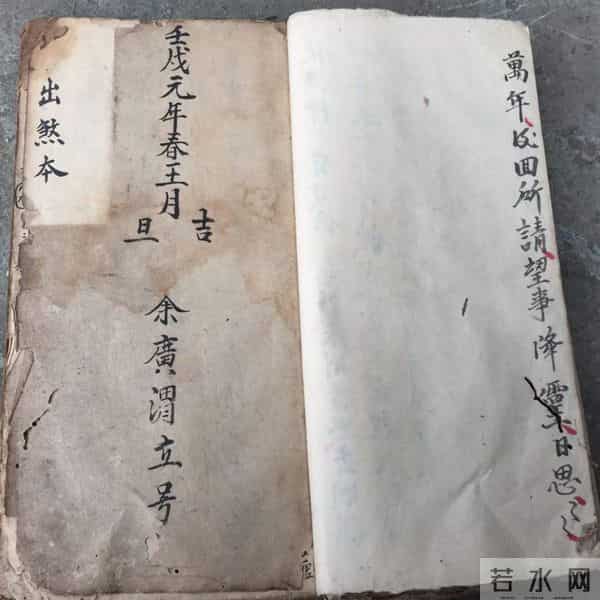 萬年火回所請望事降靈日思之
壬戌元年春王月
吉旦
余廣渭立号
出煞本
若水网